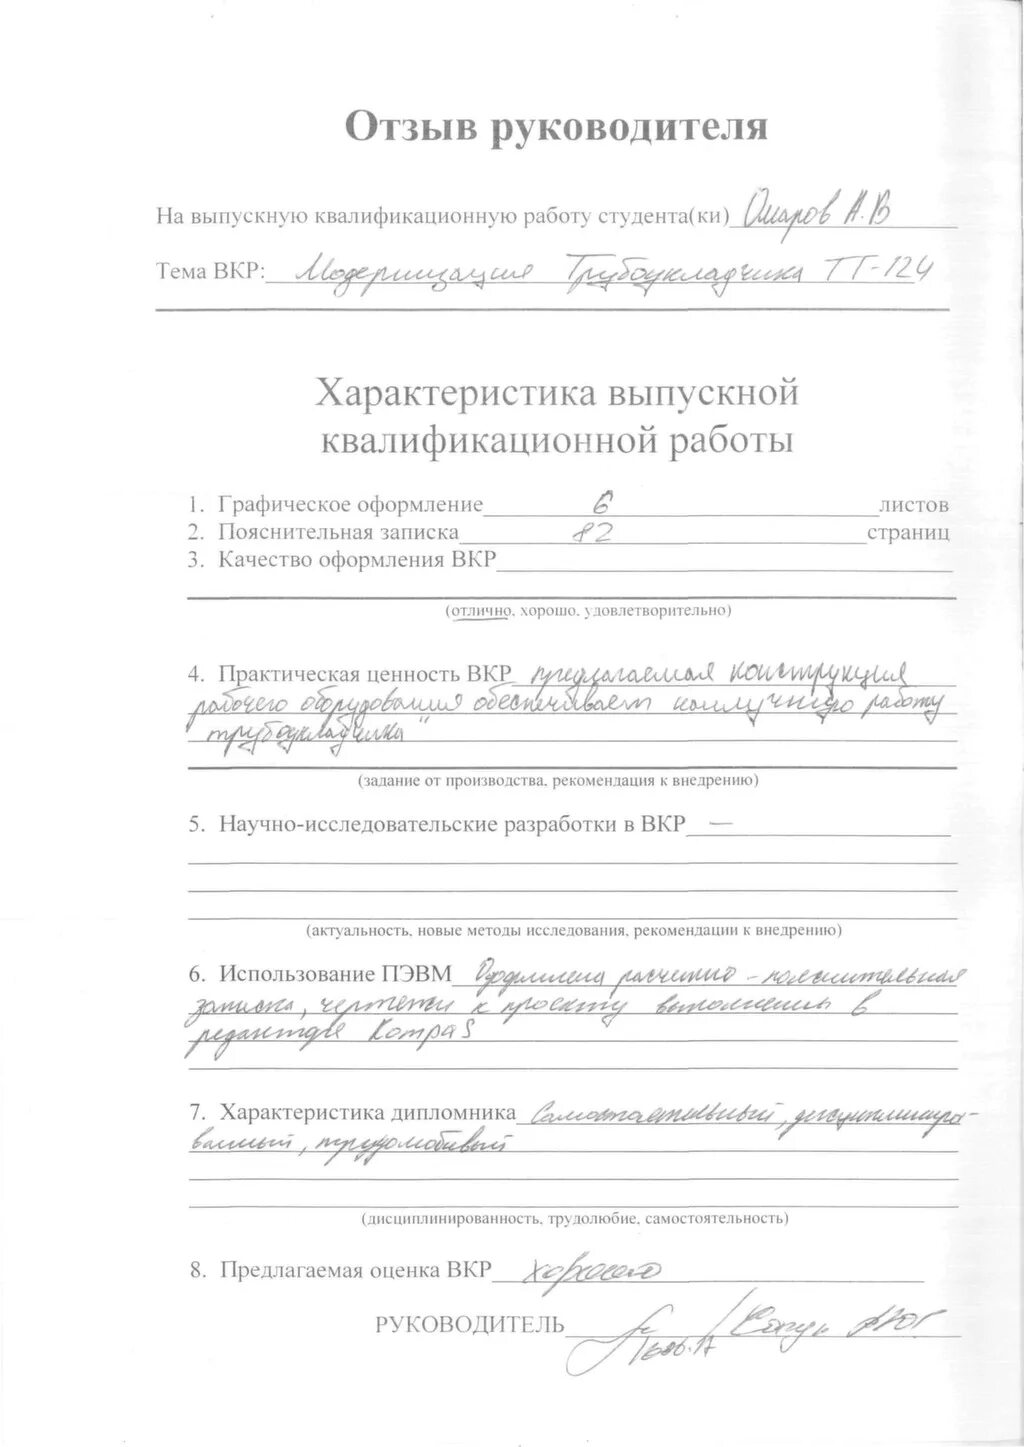 Отзыв руководителя
На выпускную квалификационную работу студента(ки) Омаров А.В
Тема ВКР: Модернизация Трубоукладчика ТГ-124
Характеристика выпускной
квалификационной работы
1. Графическое оформление 6 листов
2. Пояснительная записка 82 страниц
3. Качество оформления ВКР
(отлично, хорошо, удовлетворительно)
4. Практическая ценность ВКР предлагаемая конструкция
рабочего оборудования обеспечивает наилучшую работу
трубоукладчика"
(задание от производства, рекомендация к внедрению)
5. Научно-исследовательские разработки в ВКР —
(актуальность, новые методы исследования, рекомендации к внедрению)
6. Использование ПЭВМ Оформлена расчетно-пояснительная
записка, чертежи к проекту выполнены в
редакторе Компас
7. Характеристика дипломника Самостоятельный, дисциплиниро-
ванный, трудолюбивый
(дисциплинированность, трудолюбие, самостоятельность)
8. Предлагаемая оценка ВКР хорошо
РУКОВОДИТЕЛЬ